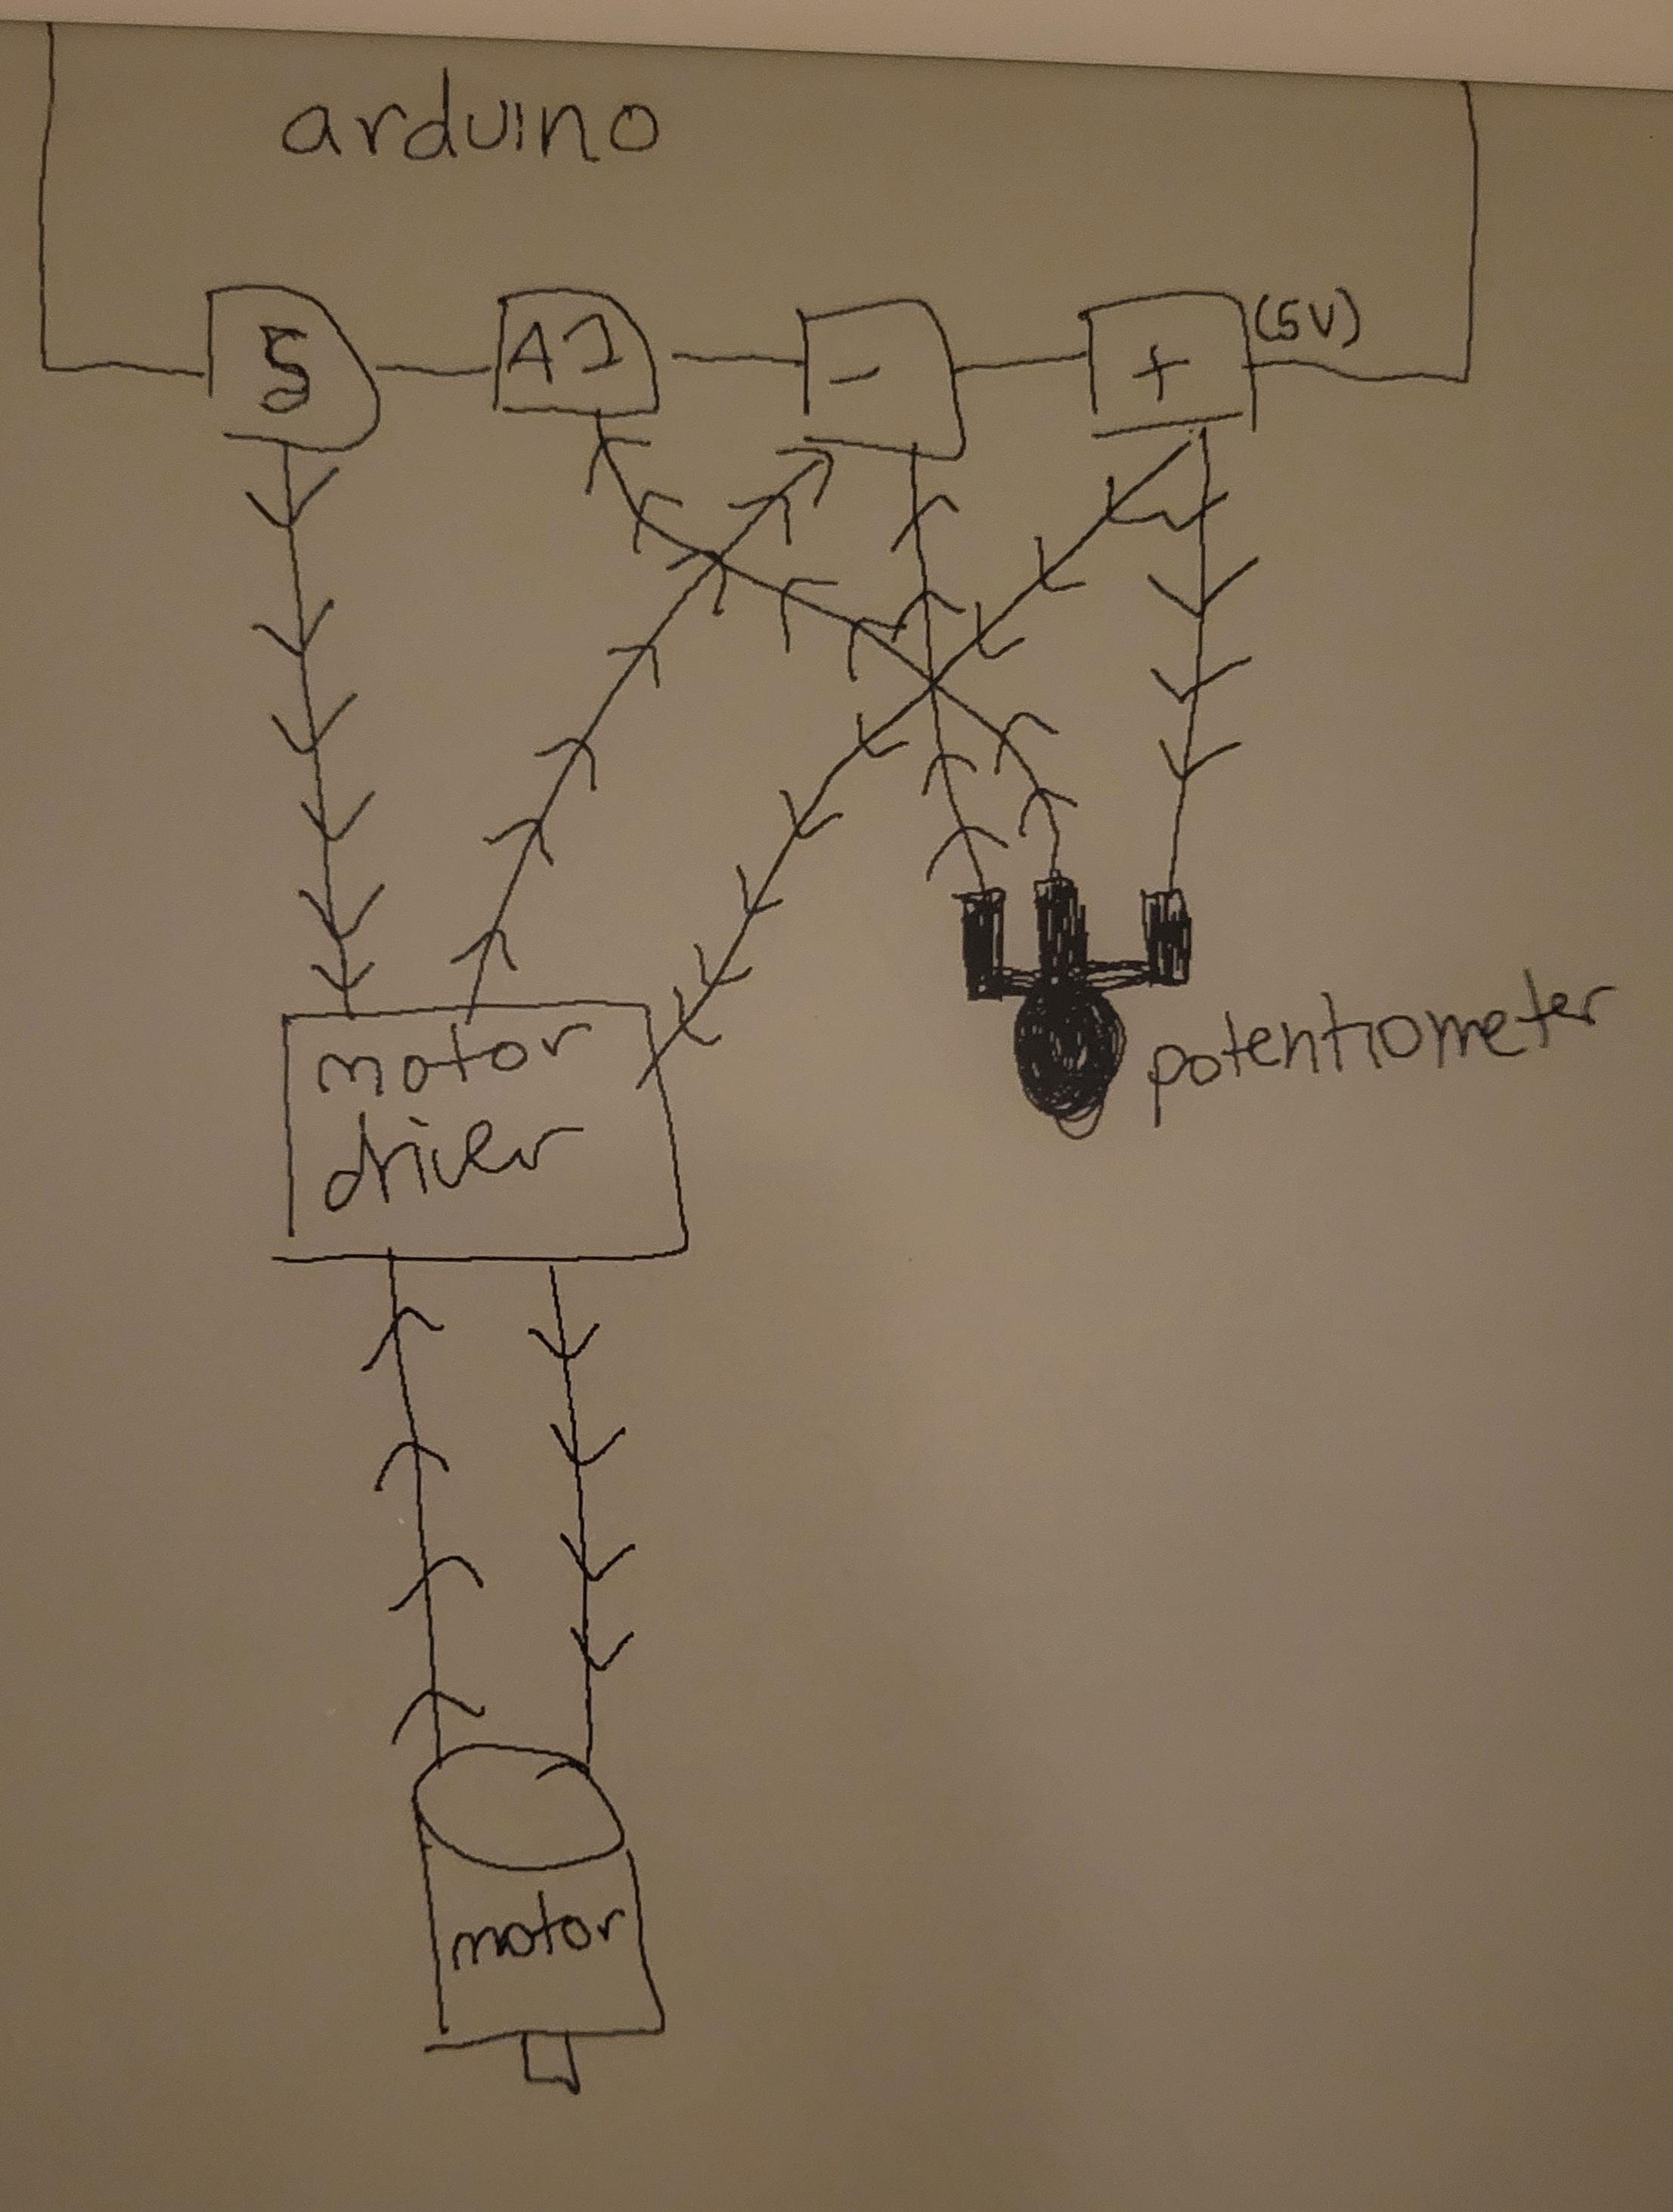 arduino
5
A1
-
+
(5V)
motor
driver
potentiometer
motor